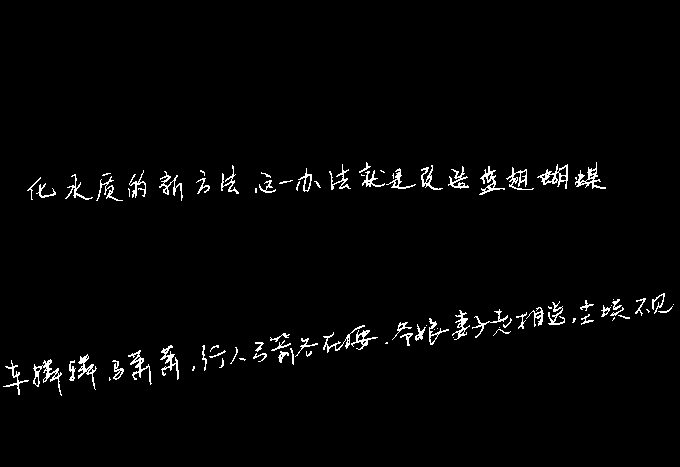 化水质的新方法,这一办法就是改造蓝翅蝴蝶
车辚辚,马萧萧,行人弓箭各在腰.爷娘妻子走相送,尘埃不见